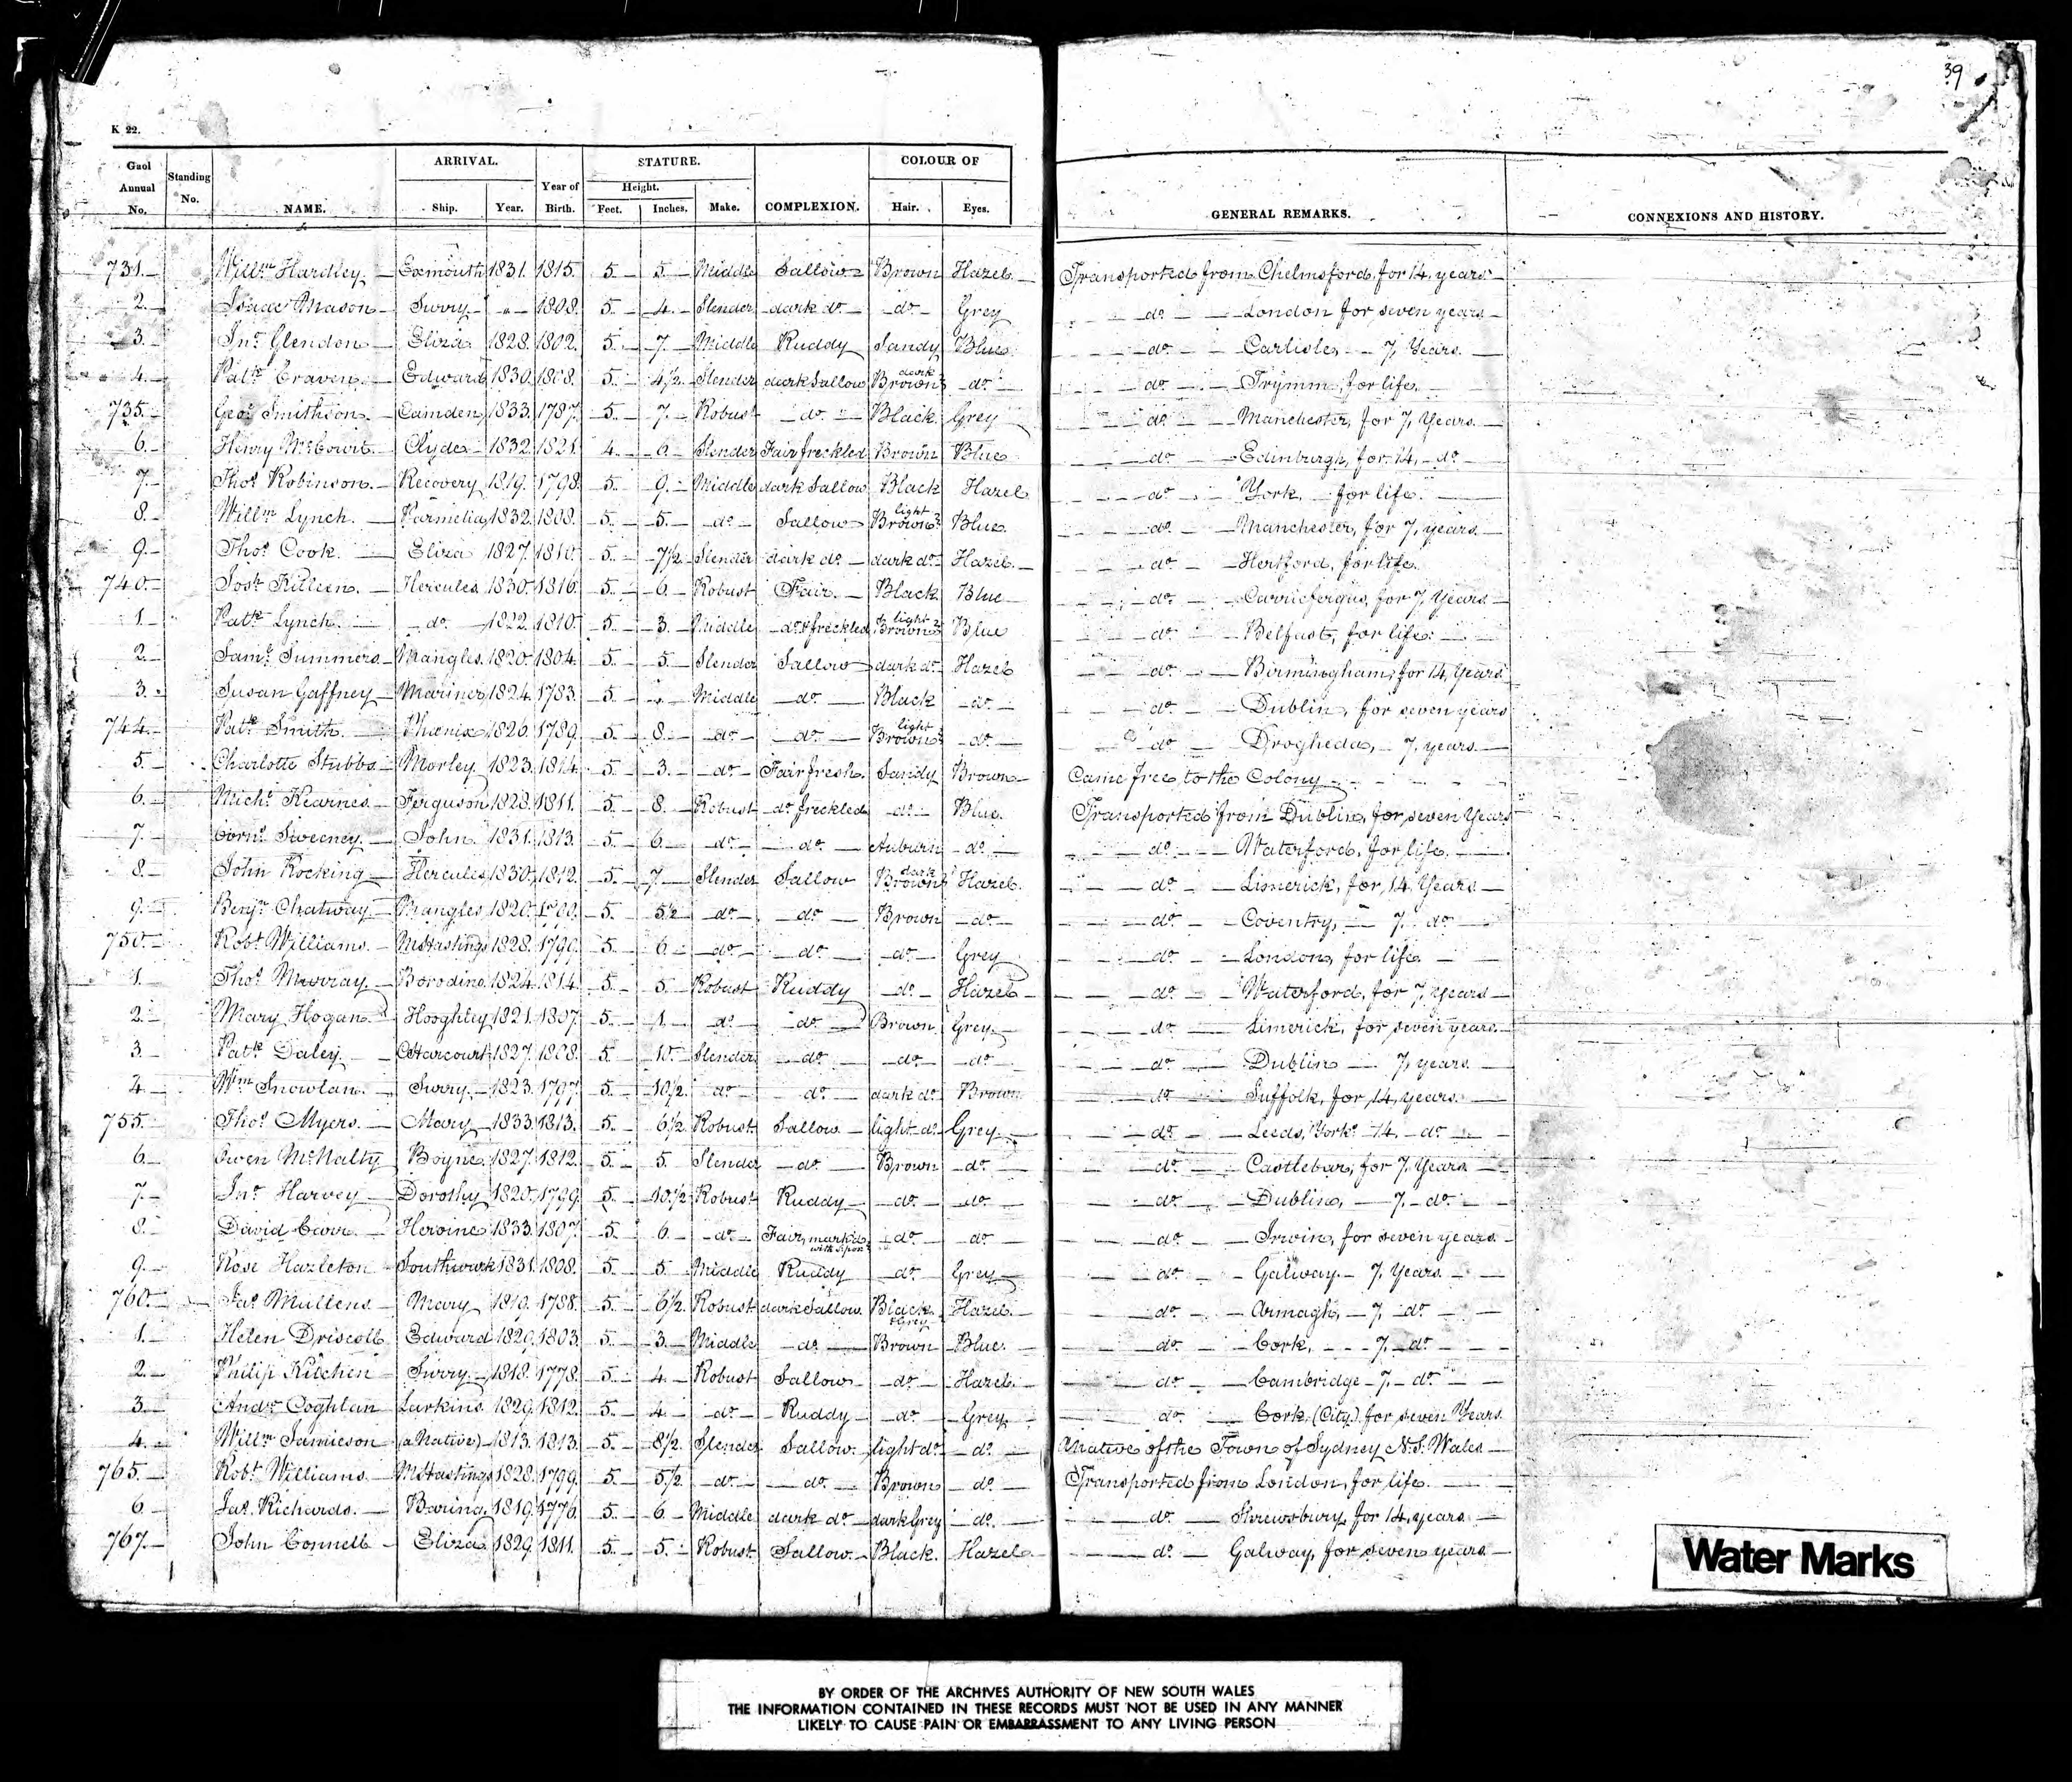 39
K 22.
Gaol Annual No. Standing No. NAME. ARRIVAL. Ship. Year. Year of Birth. STATURE. Height. Feet. Inches. Make. COMPLEXION. COLOUR OF Hair. Eyes. GENERAL REMARKS. CONNEXIONS AND HISTORY.
731. Willm Hardley. Exmouth 1831. 1815. 5 5 Middle Sallow Brown Hazel Transported from Chelmsford, for 14, years
2. Isaac Mason Surry " 1808. 5 4 Slender dark do do Grey do London for seven years
3. Jno Glendon Eliza 1828. 1802. 5 7 Middle Ruddy Sandy Blue do Carlisle, 7, Years.
4. Patk Craven Edward 1830. 1808. 5 4½ Slender dark Sallow dark Brown do do Trymm, for life.
735. Geo. Smithson Camden 1833. 1787. 5 7 Robust do Black Grey do Manchester, for 7, Years.
6. Henry McCourt Clyde 1832. 1821. 4 6 Slender Fair freckled Brown Blue do Edinburgh, for 14, do
7. Thos Robinson. Recovery 1819. 1798. 5 9 Middle dark Sallow Black Hazel do York, for life.
8. Willm Lynch. Parmelia 1832. 1808. 5 5 do Sallow light Brown Blue do Manchester, for 7, years.
9. Thos Cook. Eliza 1827. 1810. 5 7½ Slender dark do dark do Hazel do Hertford, for life.
740. Josh Killeen. Hercules 1830. 1816. 5 6 Robust Fair. Black Blue do Carricfergus, for 7, Years
1. Patk Lynch. do 1822. 1810. 5 3 Middle do & freckled light Brown Blue do Belfast, for life.
2. Saml Summers Mangles. 1820. 1804. 5 5 Slender Sallow dark do Hazel do Birmingham, for 14, Years
3. Susan Gaffney Mariner 1824. 1783. 5 " Middle do Black do do Dublin, for seven years
744. Patk Smith. Phœnix 1826. 1789. 5 8 do do light Brown do do Drogheda, 7, years.
5. Charlotte Stubbs Morley. 1823. 1814. 5 3 do Fair fresh. Sandy Brown Came free to the Colony
6. Michl Kearnes. Ferguson 1828. 1811. 5 8 Robust do freckled do Blue. Transported from Dublin, for seven Years
7. Corns Sweeney. John 1831. 1813. 5 6 do do Auburn do do Waterford, for life.
8. John Rocking Hercules 1830. 1812. 5 7 Slender Sallow dark Brown Hazel. do Limerick, for 14, Years
9. Benjn Chatway Mangles 1820. 5 5½ do do Brown do do Coventry, 7, do
750. Robt Williams. MHastings 1828. 1799. 5 6 do do do Grey do London, for life
1. Thos Murray. Borodino 1824. 1814. 5 5 Robust Ruddy do Hazel do Waterford, for 7, years
2. Mary Hogan Hooghley 1821. 1807. 5 1 do do Brown Grey. do Limerick, for seven years.
3. Patk Daley. CHarcourt 1827. 1808. 5 10 Slender do do do do Dublin 7, years
4. Wm Snowlan. Surry. 1823. 1797. 5 10½ do do dark do Brown do Suffolk, for 14, years.
755. Thos Myers. Mary 1833. 1813. 5 6½ Robust Sallow light do Grey do Leeds, York 14, do
6. Owen McNalty Boyne. 1827. 1812. 5 5 Slender do Brown do do Castlebar, for 7, Years
7. Jno Harvey Dorothy 1820. 1799. 5 10½ Robust Ruddy do do do Dublin, 7, do
8. David Carr. Heroine 1833. 1807. 5 6 do Fair, marked do do do Irwin, for seven years
9. Rose Hazleton Southwark 1831. 1808. 5 5 Middle Ruddy do Grey do Galway. 7, Years
760. Jas Mullens. Mary 1819. 1788. 5 6½ Robust dark Sallow Black & Grey Hazel do Armagh, 7, do
1. Helen Driscoll Edward 1829. 1803. 5 3 Middle do Brown Blue. do Cork, 7, do
2. Philip Kitchen Surry 1818. 1778. 5 4 Robust Sallow do Hazel do Cambridge 7, do
3. Andw Coghlan Larkins 1829. 1812. 5 4 do Ruddy do Grey do Cork, (City) for seven Years
4. Willm Jamieson (a Native) 1813. 1813. 5 8½ Slender Sallow light do do A native of the Town of Sydney N.S. Wales
765. Robt Williams MHastings 1828. 1799. 5 5½ do do Brown do Transported from London, for life.
6 Jas Richards. Baring. 1819. 1776. 5 6 Middle dark do dark Grey do do Shrewsbury, for 14, years
767. John Connell Eliza 1829. 1811. 5 5 Robust Sallow Black. Hazel do Galway, for seven years
Water Marks
BY ORDER OF THE ARCHIVES AUTHORITY OF NEW SOUTH WALES
THE INFORMATION CONTAINED IN THESE RECORDS MUST NOT BE USED IN ANY MANNER
LIKELY TO CAUSE PAIN OR EMBARRASSMENT TO ANY LIVING PERSON